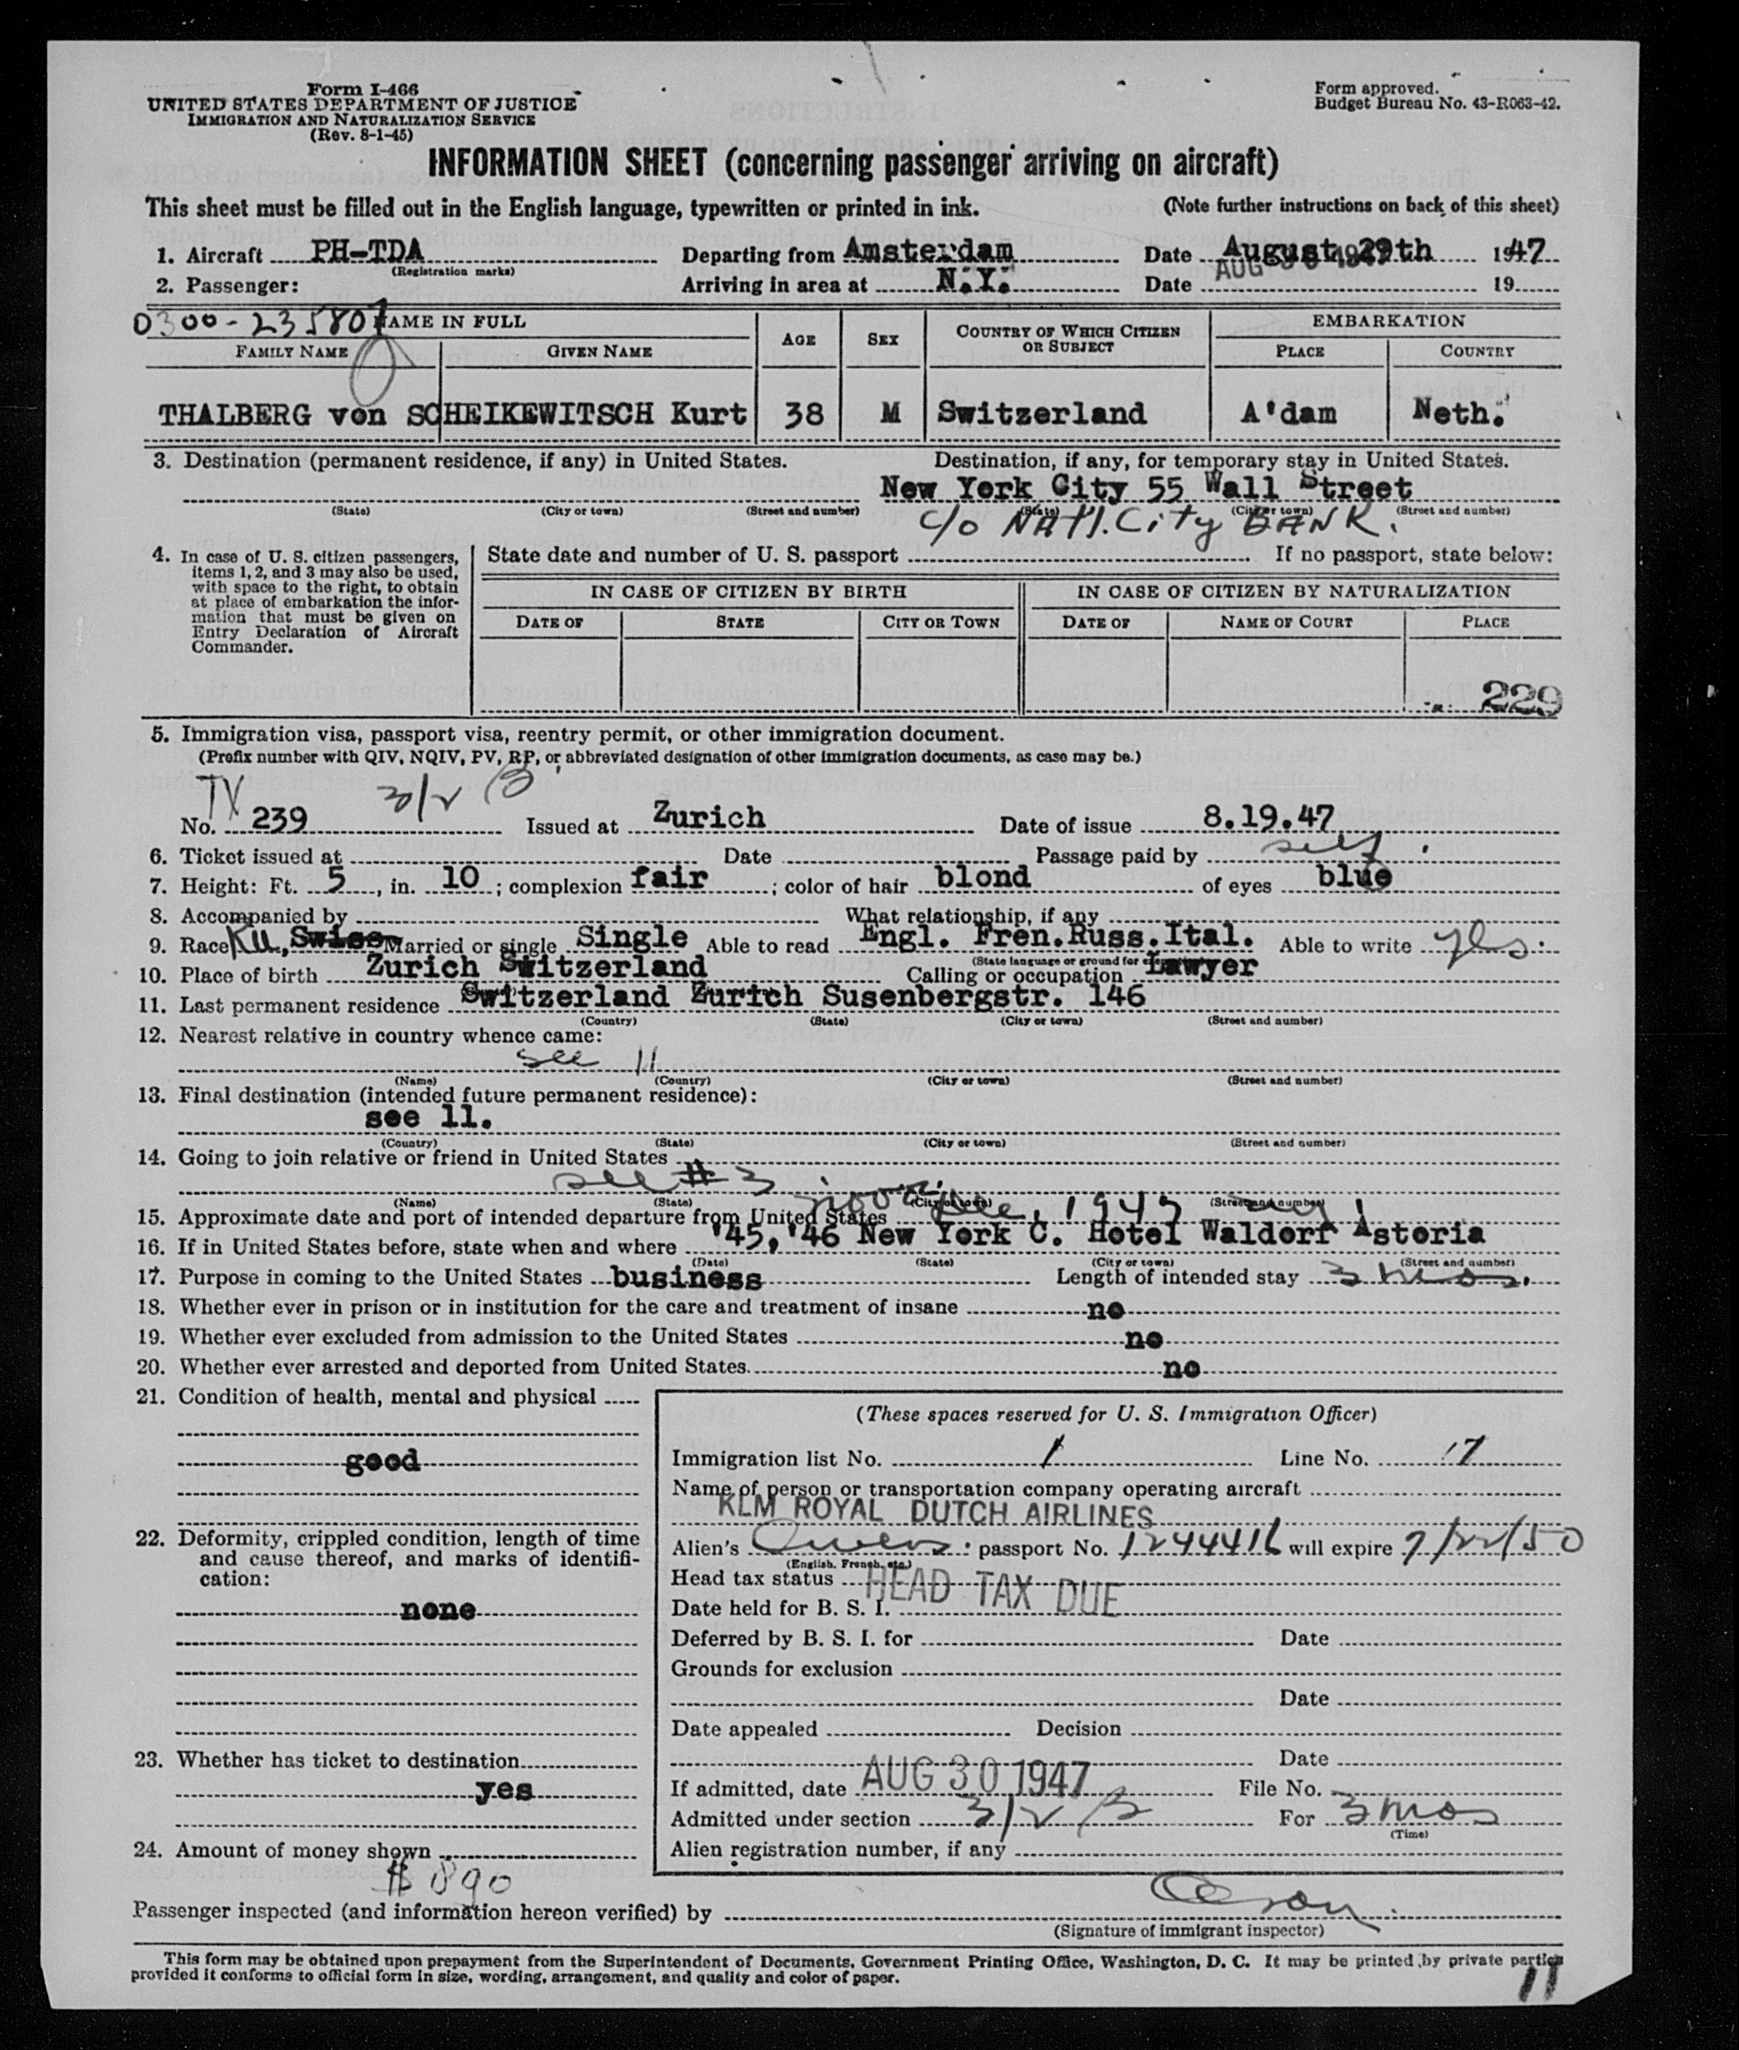 Form I-466
UNITED STATES DEPARTMENT OF JUSTICE
IMMIGRATION AND NATURALIZATION SERVICE
(Rev. 8-1-45)
Form approved.
Budget Bureau No. 43-R063-42.
INFORMATION SHEET (concerning passenger arriving on aircraft)
This sheet must be filled out in the English language, typewritten or printed in ink. (Note further instructions on back of this sheet)
1. Aircraft PH-TDA Departing from Amsterdam Date August 29th 1947
(Registration marks)
2. Passenger: Arriving in area at N.Y. Date AUG 30 1947 19
0300-235807 NAME IN FULL AGE SEX COUNTRY OF WHICH CITIZEN OR SUBJECT EMBARKATION
FAMILY NAME GIVEN NAME PLACE COUNTRY
THALBERG von SCHEIKEWITSCH Kurt 38 M Switzerland A'dam Neth.
3. Destination (permanent residence, if any) in United States. Destination, if any, for temporary stay in United States.
New York City 55 Wall Street
(State) (City or town) (Street and number) (State) (City or town) (Street and number)
c/o NAT'L. City BANK.
4. In case of U. S. citizen passengers, items 1, 2, and 3 may also be used, with space to the right, to obtain at place of embarkation the information that must be given on Entry Declaration of Aircraft Commander.
State date and number of U. S. passport If no passport, state below:
IN CASE OF CITIZEN BY BIRTH IN CASE OF CITIZEN BY NATURALIZATION
DATE OF STATE CITY OR TOWN DATE OF NAME OF COURT PLACE
229
5. Immigration visa, passport visa, reentry permit, or other immigration document.
(Prefix number with QIV, NQIV, PV, RP, or abbreviated designation of other immigration documents, as case may be.)
TV 3/2 B
No. 239 Issued at Zurich Date of issue 8.19.47
6. Ticket issued at Date Passage paid by self
7. Height: Ft. 5, in. 10; complexion fair; color of hair blond of eyes blue
8. Accompanied by What relationship, if any
9. Race Swiss Married or single Single Able to read Engl. Fren.Russ.Ital. Able to write yes
(State language or ground for exemption)
10. Place of birth Zurich Switzerland Calling or occupation Lawyer
11. Last permanent residence Switzerland Zurich Susenbergstr. 146
(Country) (State) (City or town) (Street and number)
12. Nearest relative in country whence came:
see 11
(Name) (Country) (City or town) (Street and number)
13. Final destination (intended future permanent residence):
see 11.
(Country) (State) (City or town) (Street and number)
14. Going to join relative or friend in United States
see #3
(Name) (State) (City or town) (Street and number)
15. Approximate date and port of intended departure from United States 1947
16. If in United States before, state when and where '45,'46 New York C. Hotel Waldorf Astoria
(Date) (State) (City or town) (Street and number)
17. Purpose in coming to the United States business Length of intended stay 3 mos.
18. Whether ever in prison or in institution for the care and treatment of insane no
19. Whether ever excluded from admission to the United States no
20. Whether ever arrested and deported from United States no
21. Condition of health, mental and physical
good
22. Deformity, crippled condition, length of time and cause thereof, and marks of identification:
none
23. Whether has ticket to destination
yes
24. Amount of money shown
$890
(These spaces reserved for U. S. Immigration Officer)
Immigration list No. 1 Line No. 17
Name of person or transportation company operating aircraft
KLM ROYAL DUTCH AIRLINES
Alien's passport No. 1244416 will expire 7/22/50
(English, French, etc.)
Head tax status HEAD TAX DUE
Date held for B. S. I.
Deferred by B. S. I. for Date
Grounds for exclusion
Date
Date appealed Decision
Date
If admitted, date AUG 30 1947 File No.
Admitted under section 3/2 B For 3 mos
(Time)
Alien registration number, if any
Passenger inspected (and information hereon verified) by
(Signature of immigrant inspector)
This form may be obtained upon prepayment from the Superintendent of Documents, Government Printing Office, Washington, D. C. It may be printed by private parties
provided it conforms to official form in size, wording, arrangement, and quality and color of paper.
11